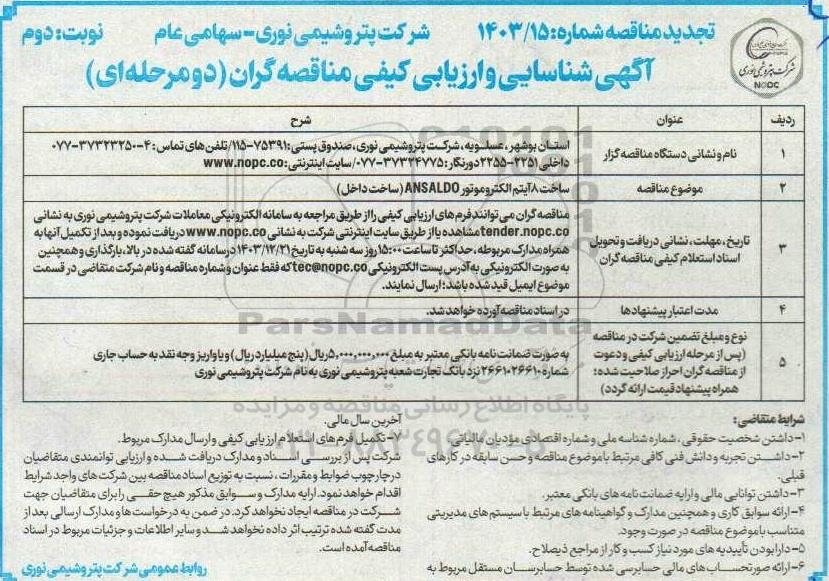 تجدید مناقصه شماره: ۱۴۰۳/۱۵ شرکت پتروشیمی نوری-سهامی عام نوبت: دوم
آگهی شناسایی و ارزیابی کیفی مناقصه گران (دو مرحله ای)
شرکت پتروشیمی نوری
NOPC
ردیف عنوان شرح
۱ نام و نشانی دستگاه مناقصه گزار
استان بوشهر، عسلویه، شرکت پتروشیمی نوری، صندوق پستی: ۷۵۳۹۱-۱۱۵/ تلفن های تماس: ۴-۳۷۳۲۳۲۵۰-۰۷۷
داخلی ۲۲۵۱-۲۲۵۵ دورنگار: ۳۷۳۲۴۷۷۵-۰۷۷/ سایت اینترنتی: www.nopc.co
۲ موضوع مناقصه ساخت ۸ آیتم الکتروموتور ANSALDO (ساخت داخل)
۳ تاریخ، مهلت، نشانی دریافت و تحویل
اسناد استعلام کیفی مناقصه گران
مناقصه گران می توانند فرم های ارزیابی کیفی را از طریق مراجعه به سامانه الکترونیکی معاملات شرکت پتروشیمی نوری به نشانی
tender.nopc.co مشاهده یا از طریق سایت اینترنتی شرکت به نشانی www.nopc.co دریافت نموده و بعد از تکمیل آنها به
همراه مدارک مربوطه، حداکثر تا ساعت ۱۵:۰۰ روز سه شنبه به تاریخ ۱۴۰۳/۱۲/۲۱ در سامانه گفته شده در بالا، بارگذاری و همچنین
به صورت الکترونیکی به آدرس پست الکترونیکی tec@nopc.co که فقط عنوان و شماره مناقصه و نام شرکت متقاضی در قسمت
موضوع ایمیل قید شده باشد؛ ارسال نمایند.
۴ مدت اعتبار پیشنهادها در اسناد مناقصه آورده خواهد شد.
۵ نوع و مبلغ تضمین شرکت در مناقصه
(پس از مرحله ارزیابی کیفی و دعوت
از مناقصه گران احراز صلاحیت شده؛
همراه پیشنهاد قیمت ارائه گردد)
به صورت ضمانت نامه بانکی معتبر به مبلغ ۵,۰۰۰,۰۰۰,۰۰۰ ریال (پنج میلیارد ریال) و یا واریز وجه نقد به حساب جاری
شماره ۲۶۶۱۰۲۶۶۱۰ نزد بانک تجارت شعبه پتروشیمی نوری به نام شرکت پتروشیمی نوری
ParsNamadData
پایگاه اطلاع رسانی مناقصه و مزایده
شرایط متقاضی:
۱-داشتن شخصیت حقوقی، شماره شناسه ملی و شماره اقتصادی مؤدیان مالیاتی
۲-داشتن تجربه و دانش فنی کافی مرتبط با موضوع مناقصه و حسن سابقه در کارهای
قبلی.
۳-داشتن توانایی مالی و ارایه ضمانت نامه های بانکی معتبر.
۴-ارائه سوابق کاری و همچنین مدارک و گواهینامه های مرتبط با سیستم های مدیریتی
متناسب با موضوع مناقصه در صورت وجود.
۵-دارا بودن تأییدیه های مورد نیاز کسب و کار از مراجع ذیصلاح.
۶-ارائه صورتحساب های مالی حسابرسی شده توسط حسابرسان مستقل مربوط به
آخرین سال مالی.
۷-تکمیل فرم های استعلام ارزیابی کیفی و ارسال مدارک مربوط.
شرکت پس از بررسی اسناد و مدارک دریافت شده و ارزیابی توانمندی متقاضیان
در چارچوب ضوابط و مقررات، نسبت به توزیع اسناد مناقصه بین شرکت های واجد شرایط
اقدام خواهد نمود. ارایه مدارک و سوابق مذکور هیچ حقی را برای متقاضیان جهت
شرکت در مناقصه ایجاد نخواهد کرد. در ضمن به درخواست ها و مدارک ارسالی بعد از
مدت گفته شده ترتیب اثر داده نخواهد شد و سایر اطلاعات و جزئیات مربوط در اسناد
مناقصه آمده است.
روابط عمومی شرکت پتروشیمی نوری